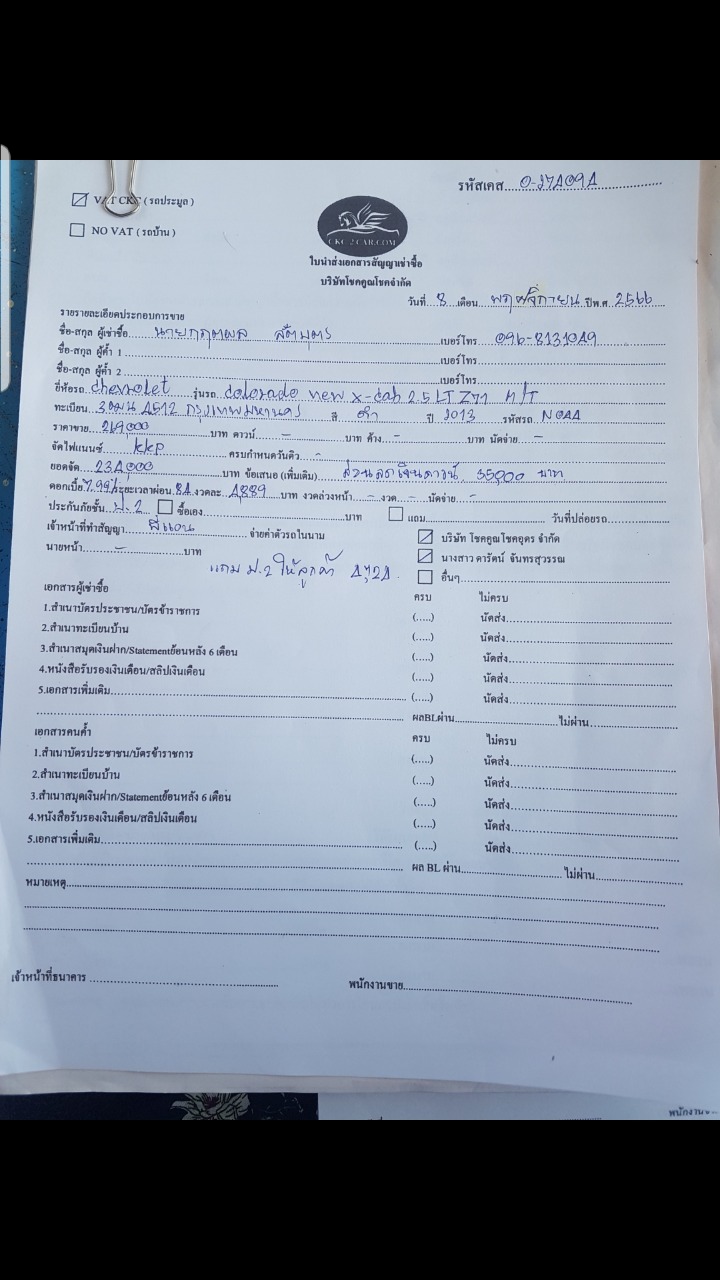 รหัสเคส....O-27A09A
VAT CKC (รถประมูล)
NO VAT (รถบ้าน)
CKC 2 CAR.COM
ใบนำส่งเอกสารสัญญาเช่าซื้อ
บริษัทโชคคูณโชคจำกัด
วันที่ 8 เดือน พฤศจิกายน ปีพ.ศ 2566
รายรายละเอียดประกอบการขาย
ชื่อ-สกุล ผู้เช่าซื้อ นาย เบอร์โทร
ชื่อ-สกุล ผู้ค้ำ 1 เบอร์โทร
ชื่อ-สกุล ผู้ค้ำ 2 เบอร์โทร
ยี่ห้อรถ chevrolet รุ่นรถ colorado new x-cab 2.5 LT Z71 M/T
ทะเบียน กรุงเทพมหานคร สี ดำ ปี 2013 รหัสรถ
ราคาขาย 269000 บาท ดาวน์ - บาท ค้าง - บาท นัดจ่าย -
จัดไฟแนนซ์ kkp ครบกำหนดวันคิว -
ยอดจัด 234000 บาท ข้อเสนอ (เพิ่มเติม) ส่วนลดเงินดาวน์ 35000 บาท
ดอกเบี้ย 7.99% ระยะเวลาผ่อน 84 งวดละ 4889 บาท งวดล่วงหน้า - งวด - นัดจ่าย -
ประกันภัยชั้น ป.2 ซื้อเอง บาท แถม วันที่ปล่อยรถ
เจ้าหน้าที่ทำสัญญา จ่ายค่าตัวรถในนาม บริษัท โชคคูณโชคอุดร จำกัด
นายหน้า - บาท นางสาว ดารัตน์ จันทรสุวรรณ
แถม ป.2 ให้ลูกค้า อื่นๆ
เอกสารผู้เช่าซื้อ ครบ ไม่ครบ
1.สำเนาบัตรประชาชน/บัตรข้าราชการ (.....) นัดส่ง
2.สำเนาทะเบียนบ้าน (.....) นัดส่ง
3.สำเนาสมุดเงินฝาก/Statementย้อนหลัง 6 เดือน (.....) นัดส่ง
4.หนังสือรับรองเงินเดือน/สลิปเงินเดือน (.....) นัดส่ง
5.เอกสารเพิ่มเติม (.....) นัดส่ง
ผลBLผ่าน ไม่ผ่าน
เอกสารคนค้ำ ครบ ไม่ครบ
1.สำเนาบัตรประชาชน/บัตรข้าราชการ (.....) นัดส่ง
2.สำเนาทะเบียนบ้าน (.....) นัดส่ง
3.สำเนาสมุดเงินฝาก/Statementย้อนหลัง 6 เดือน (.....) นัดส่ง
4.หนังสือรับรองเงินเดือน/สลิปเงินเดือน (.....) นัดส่ง
5.เอกสารเพิ่มเติม (.....) นัดส่ง
ผล BL ผ่าน ไม่ผ่าน
หมายเหตุ
เจ้าหน้าที่ธนาคาร พนักงานขาย
พนักงาน